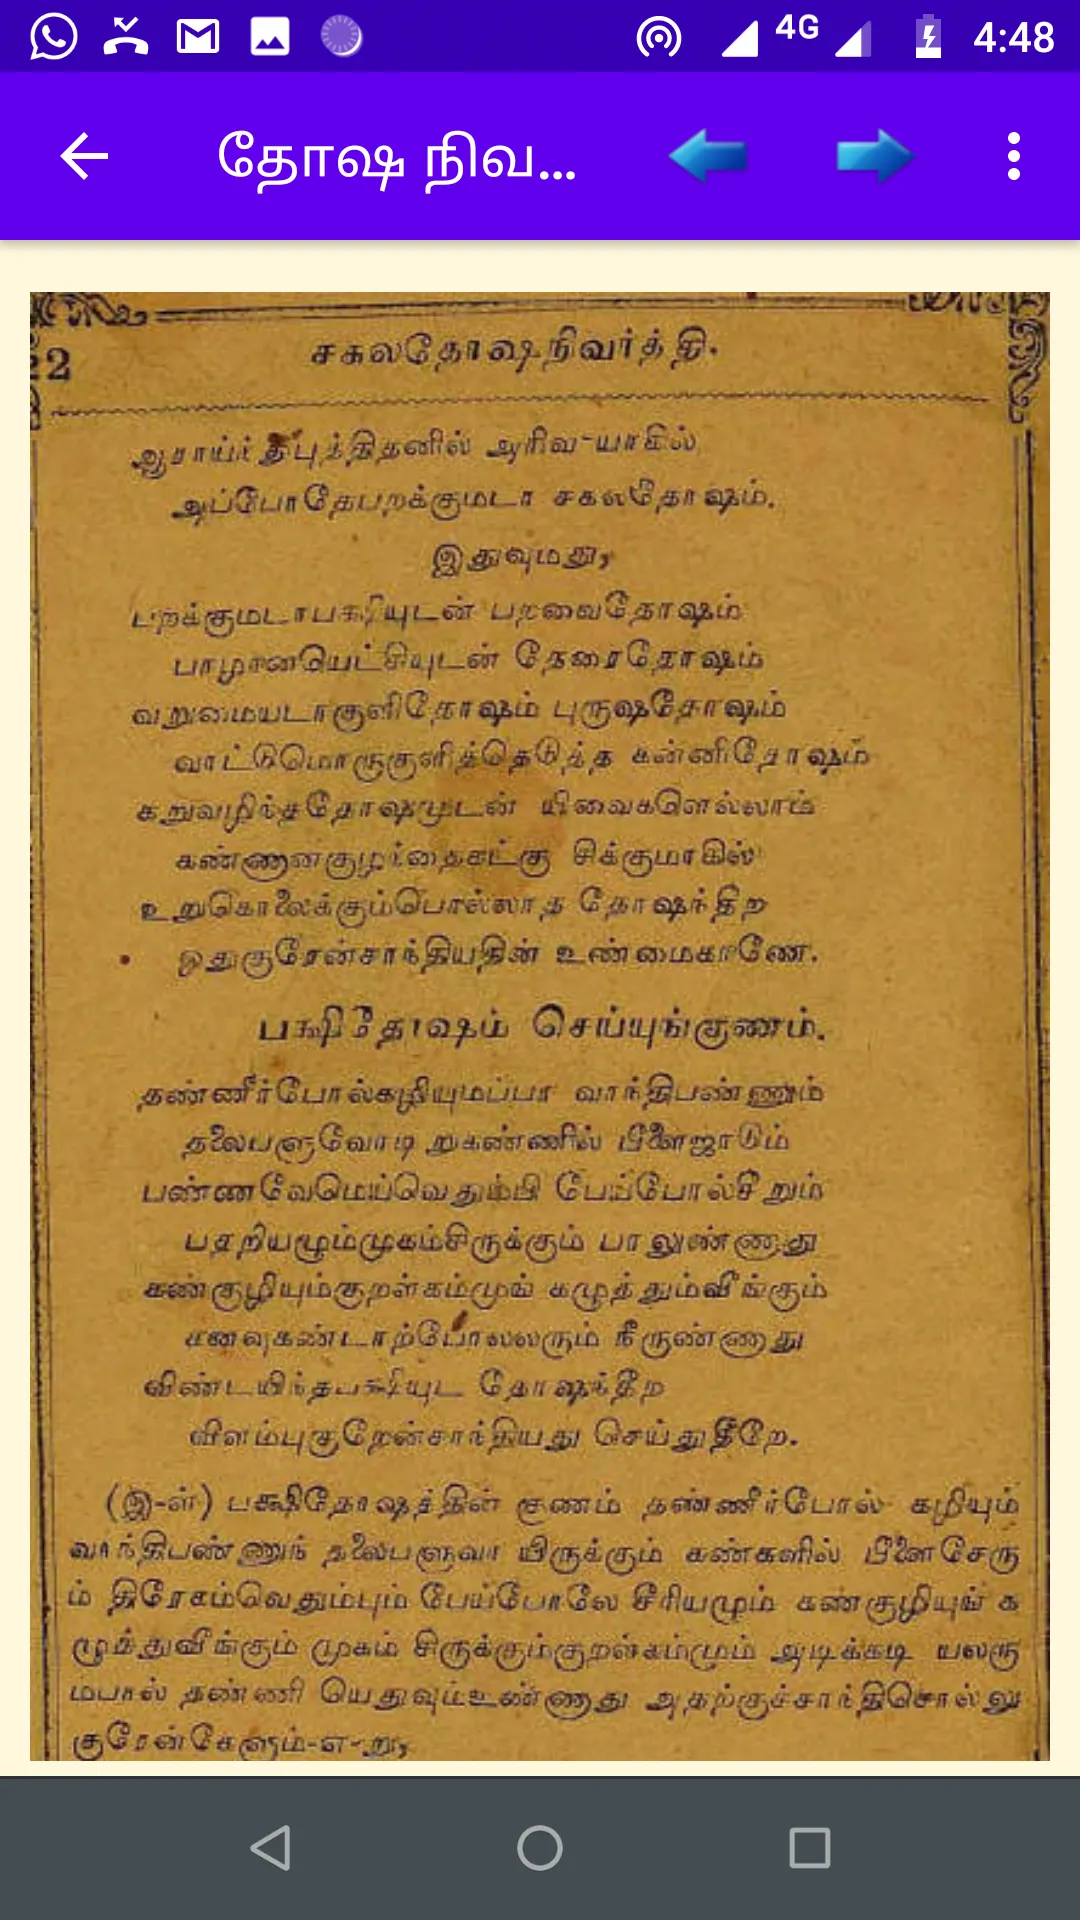 4G 4:48
தோஷ நிவ...
22
சகலதோஷநிவர்த்தி.
ஆராய்ந் புத்திதனில் அரிவ-யாகில்
அப்போதேபறக்குமடா சகலதோஷம்.
இதுவுமது,
பறக்குமடாபக்ஷியுடன் பறவைதோஷம்
பாழானயெட்சியுடன் தேரைதோஷம்
வறுமையடாகுளிதோஷம் புருஷதோஷம்
வாட்டுமொருகுளித்தெடுத்த கன்னிதோஷம்
கறுவழிந்ததோஷமுடன் யிவைகளெல்லாம்
கண்ணானகுழந்தைகட்கு சிக்குமாகில்
உறுகொலைக்கும்பொல்லாத தோஷந்திற
ஓதுகுரேன்சாந்தியதின் உண்மைகாணே.
பக்ஷிதோஷம் செய்யுங்குணம்.
தண்ணீர்போல்கழியுமப்பா வாந்திபண்ணும்
தலைபளுவோடி றுகண்ணில் பீளைஜாடும்
பண்ணவேமெய்வெதும்பி பேய்போல்சீறும்
பதறியழும்முகம்சிருக்கும் பாலுண்ணாது
கண்குழியும்குறள்கம்முங் கழுத்தும்வீங்கும்
கனவுகண்டாற்போலலரும் நீருண்ணாது
விண்டயிந்தபக்ஷியுட தோஷந்தீற
விளம்புகுறேன்சாந்தியது செய்துதீறே.
(இ-ள்) பக்ஷிதோஷத்தின் குணம் தண்ணீர்போல் கழியும்
வாந்திபண்ணுந் தலைபளுவா யிருக்கும் கண்களில் பீளைசேரு
ம் திரேகம்வெதும்பும் பேய்போலே சீரியழும் கண்குழியுங் க
ழுத்துவீங்கும் முகம் சிருக்கும்குறள்கம்மும் அடிக்கடி யலரு
ம்பால் தண்ணி யெதுவும்உண்ணாது அதற்குச்சாந்திசொல்லு
குரேன்கேளும்-எ-று,